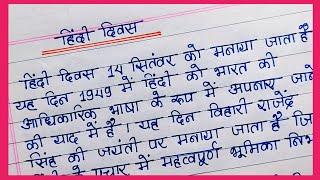 हिंदी दिवस
हिंदी दिवस 14 सितंबर को मनाया जाता है
यह दिन 1949 में हिंदी को भारत की
आधिकारिक भाषा के रूप में अपनाए जाने
की याद में है । यह दिन बिहारी राजेंद्र
सिंह की जयंती पर मनाया जाता है
प्रचार में महत्वपूर्ण भूमिका